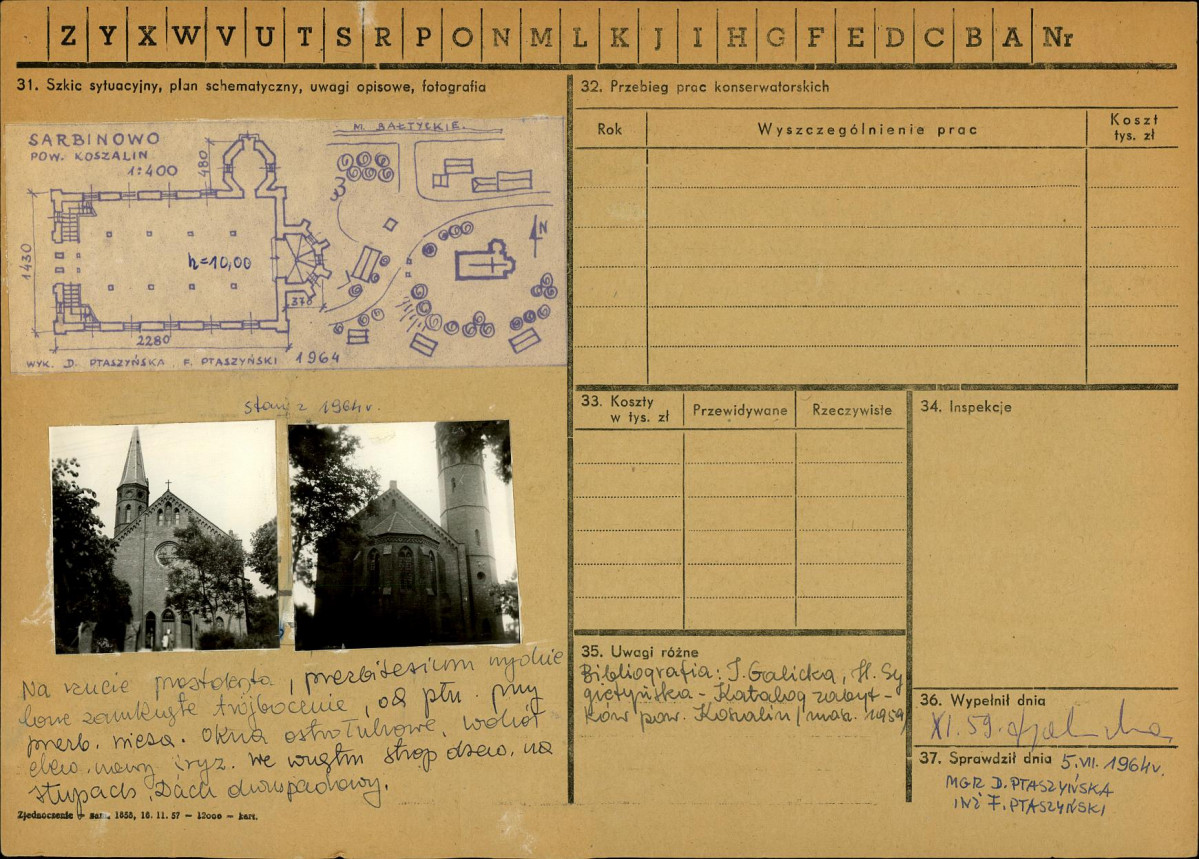 Z Y X W V U T S R P O N M L K J I H G F E D C B A Nr
31. Szkic sytuacyjny, plan schematyczny, uwagi opisowe, fotografia
SARBINOWO
POW. KOSZALIN
1:400
480
M. BAŁTYCKIE.
N
1430
h=10,00
370
2280
WYK. D. PTASZYŃSKA, F. PTASZYŃSKI 1964
stan z 1964 r.
Na rzucie prostokąta, prezbiterium wydzie
lone zamknięte trójbocznie, od płn. przy
prezb. wieża. Okna ostrołukowe, wokół
strop drew. na
słupach. Dach dwupadowy.
Zjednoczenie – zam. 1858, 16. 11. 57 – 12000 – kart.
32. Przebieg prac konserwatorskich
Rok Wyszczególnienie prac Koszt tys. zł
33. Koszty w tys. zł Przewidywane Rzeczywiste
34. Inspekcje
35. Uwagi różne
Bibliografia: I. Galicka, H. Sy
gietyńska - Katalog zabyt-
ków pow. Koszalin / masz. 1959/
36. Wypełnił dnia
XI. 59.
37. Sprawdził dnia 5. VII. 1964 r.
MGR D. PTASZYŃSKA
INŻ F. PTASZYŃSKI